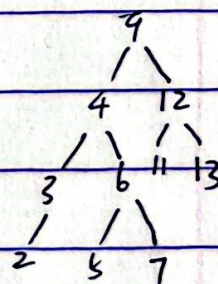 9
4 12
3 6 11 13
2 5 7